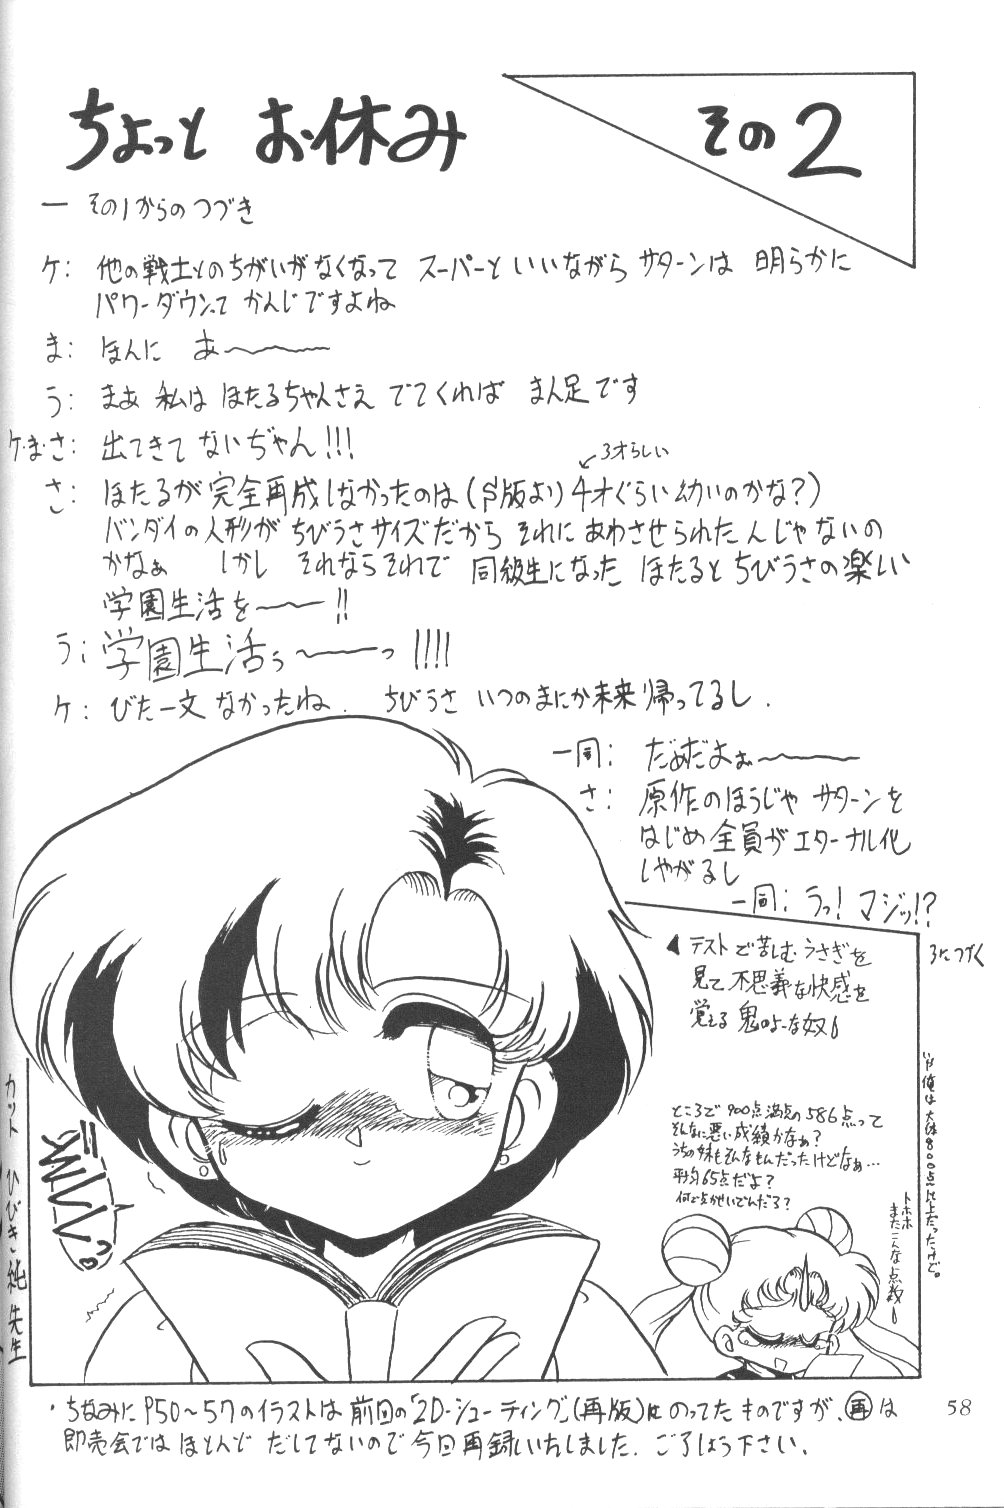 ちょっと お休み
その2
ー その1からのつづき
ケ: 他の戦士とのちがいがなくなって スーパーといいながら サターンは 明らかに
パワーダウンって かんじですよね
ま: ほんに あ〜〜〜
う: まあ 私は ほたるちゃんさえ でてくれば まん足です
ケ・ま・さ: 出てきて ないぢゃん!!!
3才らしい
さ: ほたるが 完全再成しなかったのは(S版より 4才ぐらい幼いのかな?)
バンダイの人形が ちびうさサイズだから それに あわさせられたんじゃないの
かなぁ しかし それならそれで 同級生になった ほたると ちびうさの楽しい
学園生活を〜〜!!
う: 学園生活ぅ〜〜っ!!!!
ケ: びた一文 なかったね. ちびうさ いつのまにか未来帰ってるし.
一同: だめだよぉ〜〜〜
さ: 原作のほうじゃ サターンを
はじめ全員が エターナル化
しやがるし
一同: うっ! マジッ!?
3につづく
◀ テストで苦しむ うさぎを
見て 不思義な快感を
覚える 鬼のよーな奴
ところで 900点満点の586点って
そんなに悪い成績かなぁ?
うちの妹もそんなもんだったけどなぁ…
平均65点だよ?
何で点かせいでんだろ?
いや 俺は大体800点以上だったけど。
トホホ
またこんな点数
カット ひびき純先生
・ちなみに P50〜57のイラストは 前回の「2D-シューティング」(再版)に のってたものですが、再は
即売会では ほとんど だしてないので 今回 再録いたしました. ご了しょう下さい.
58